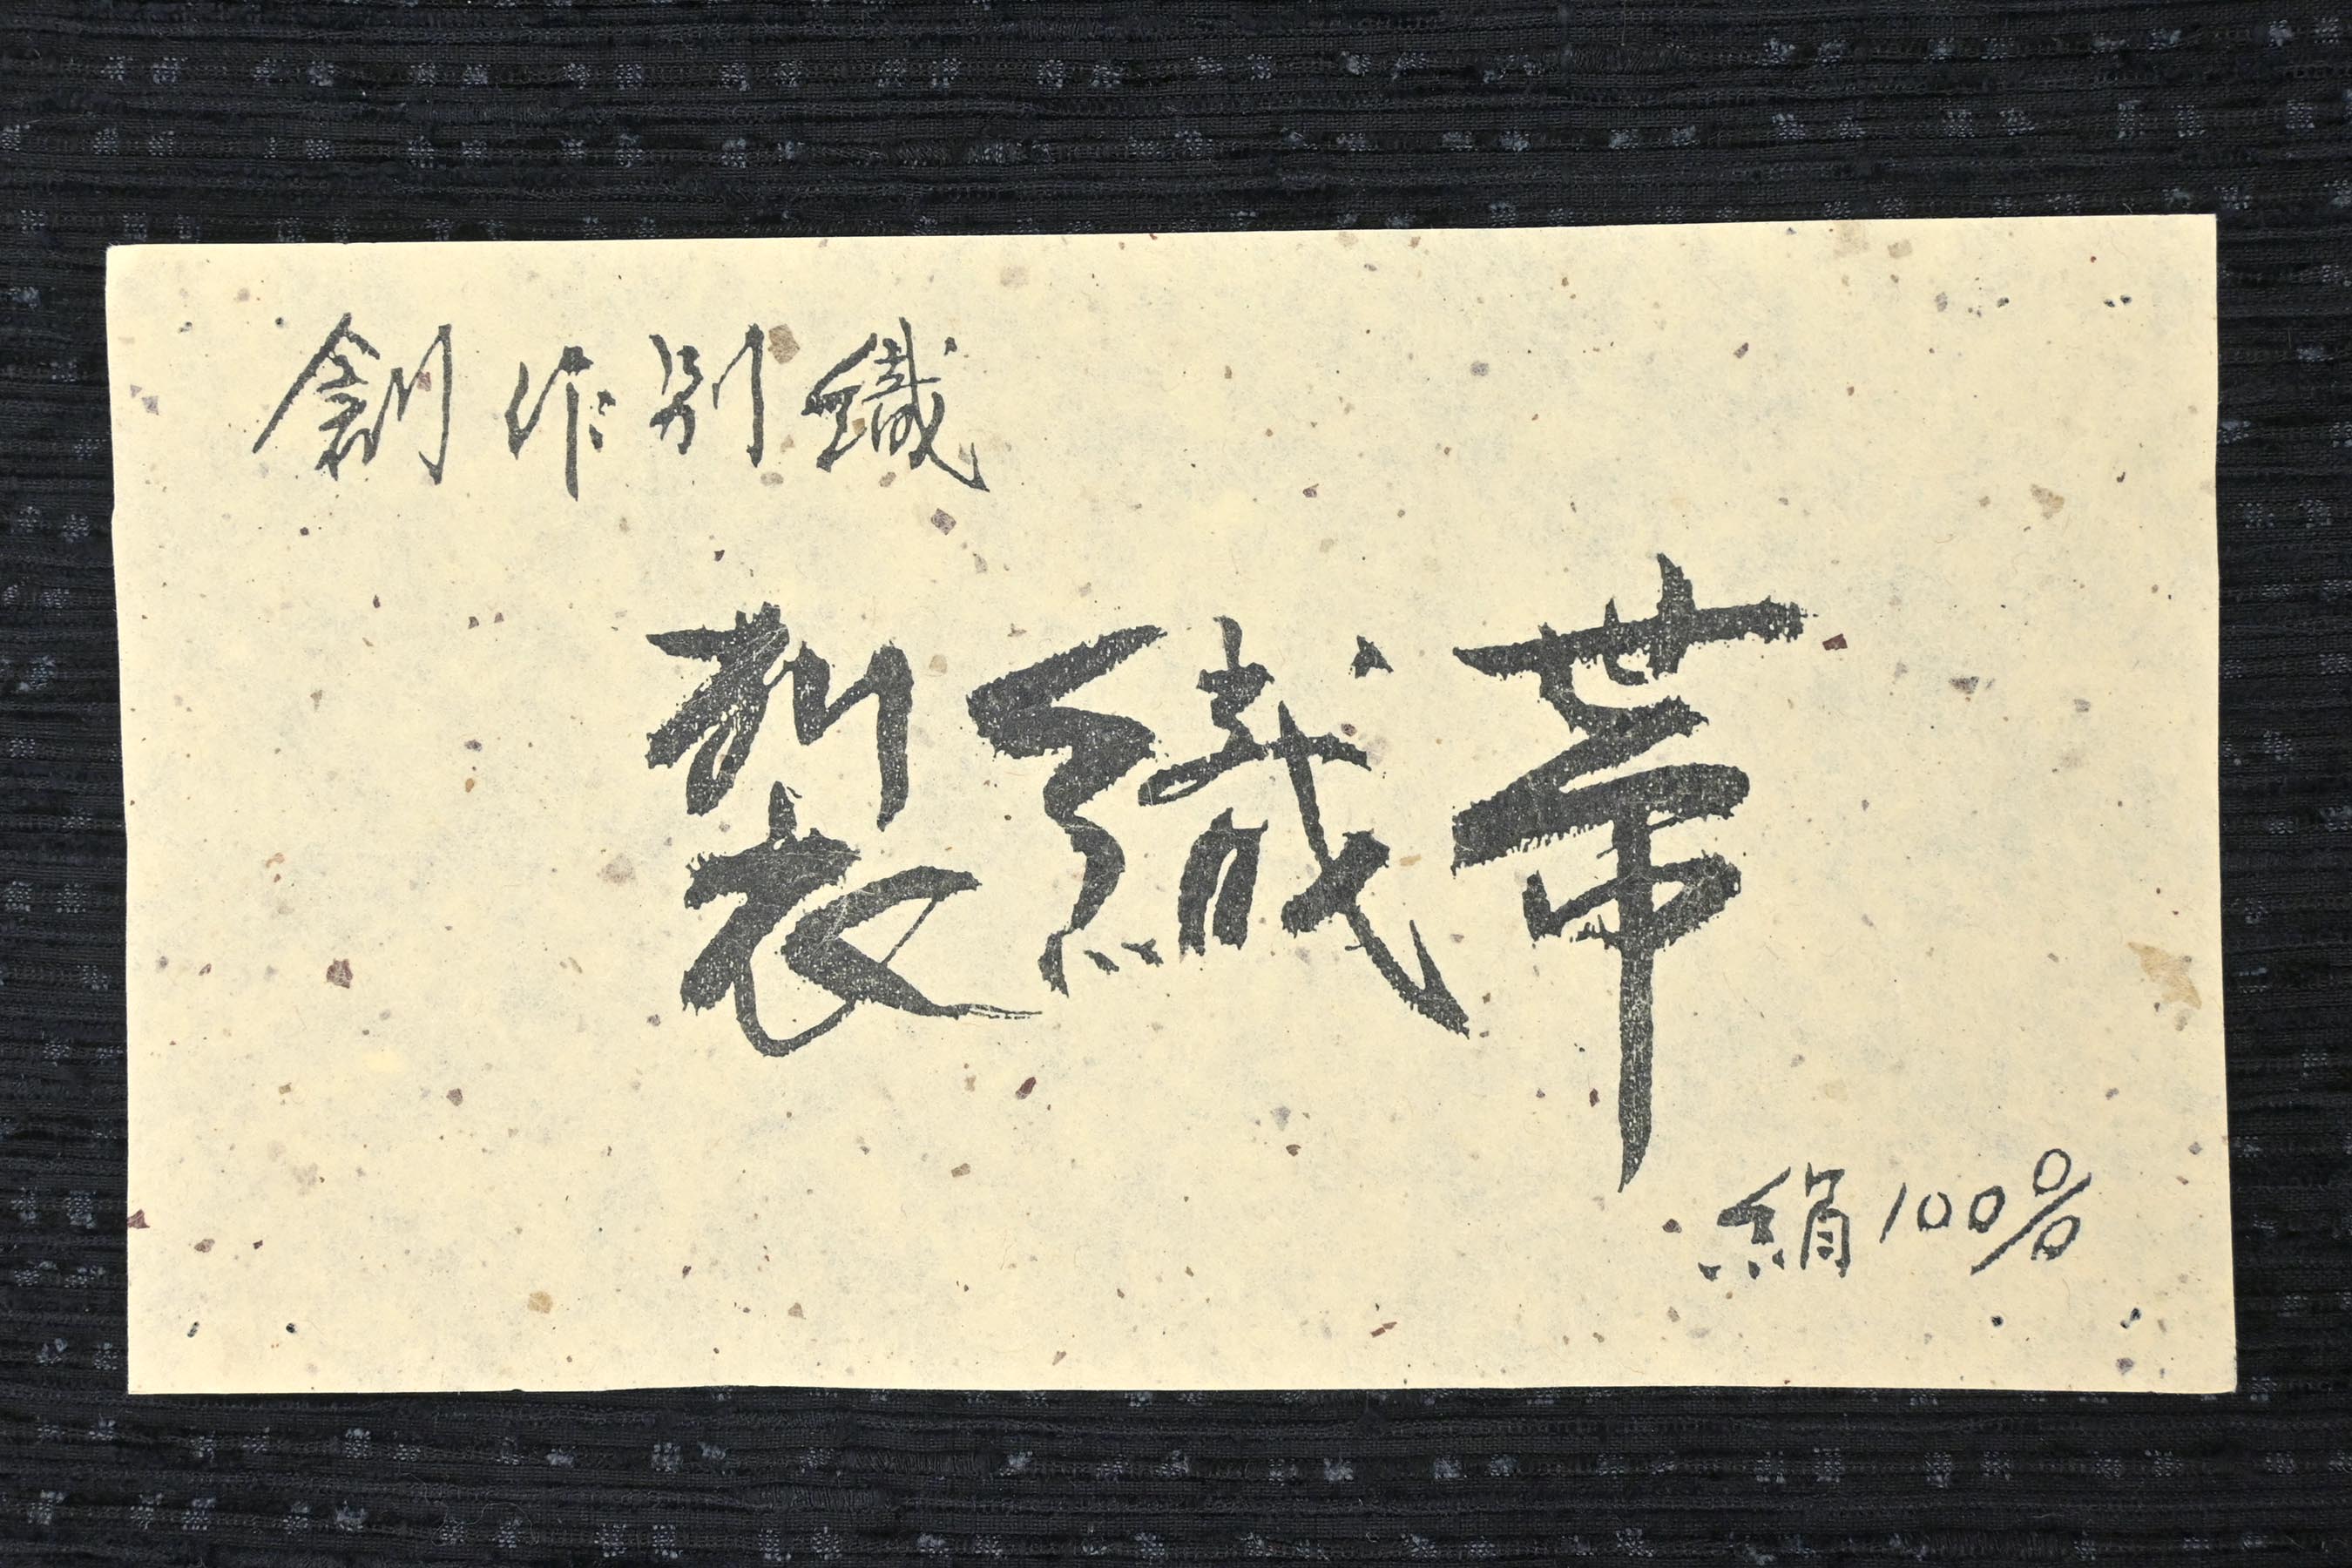 創作別織
裂織帯
絹100%